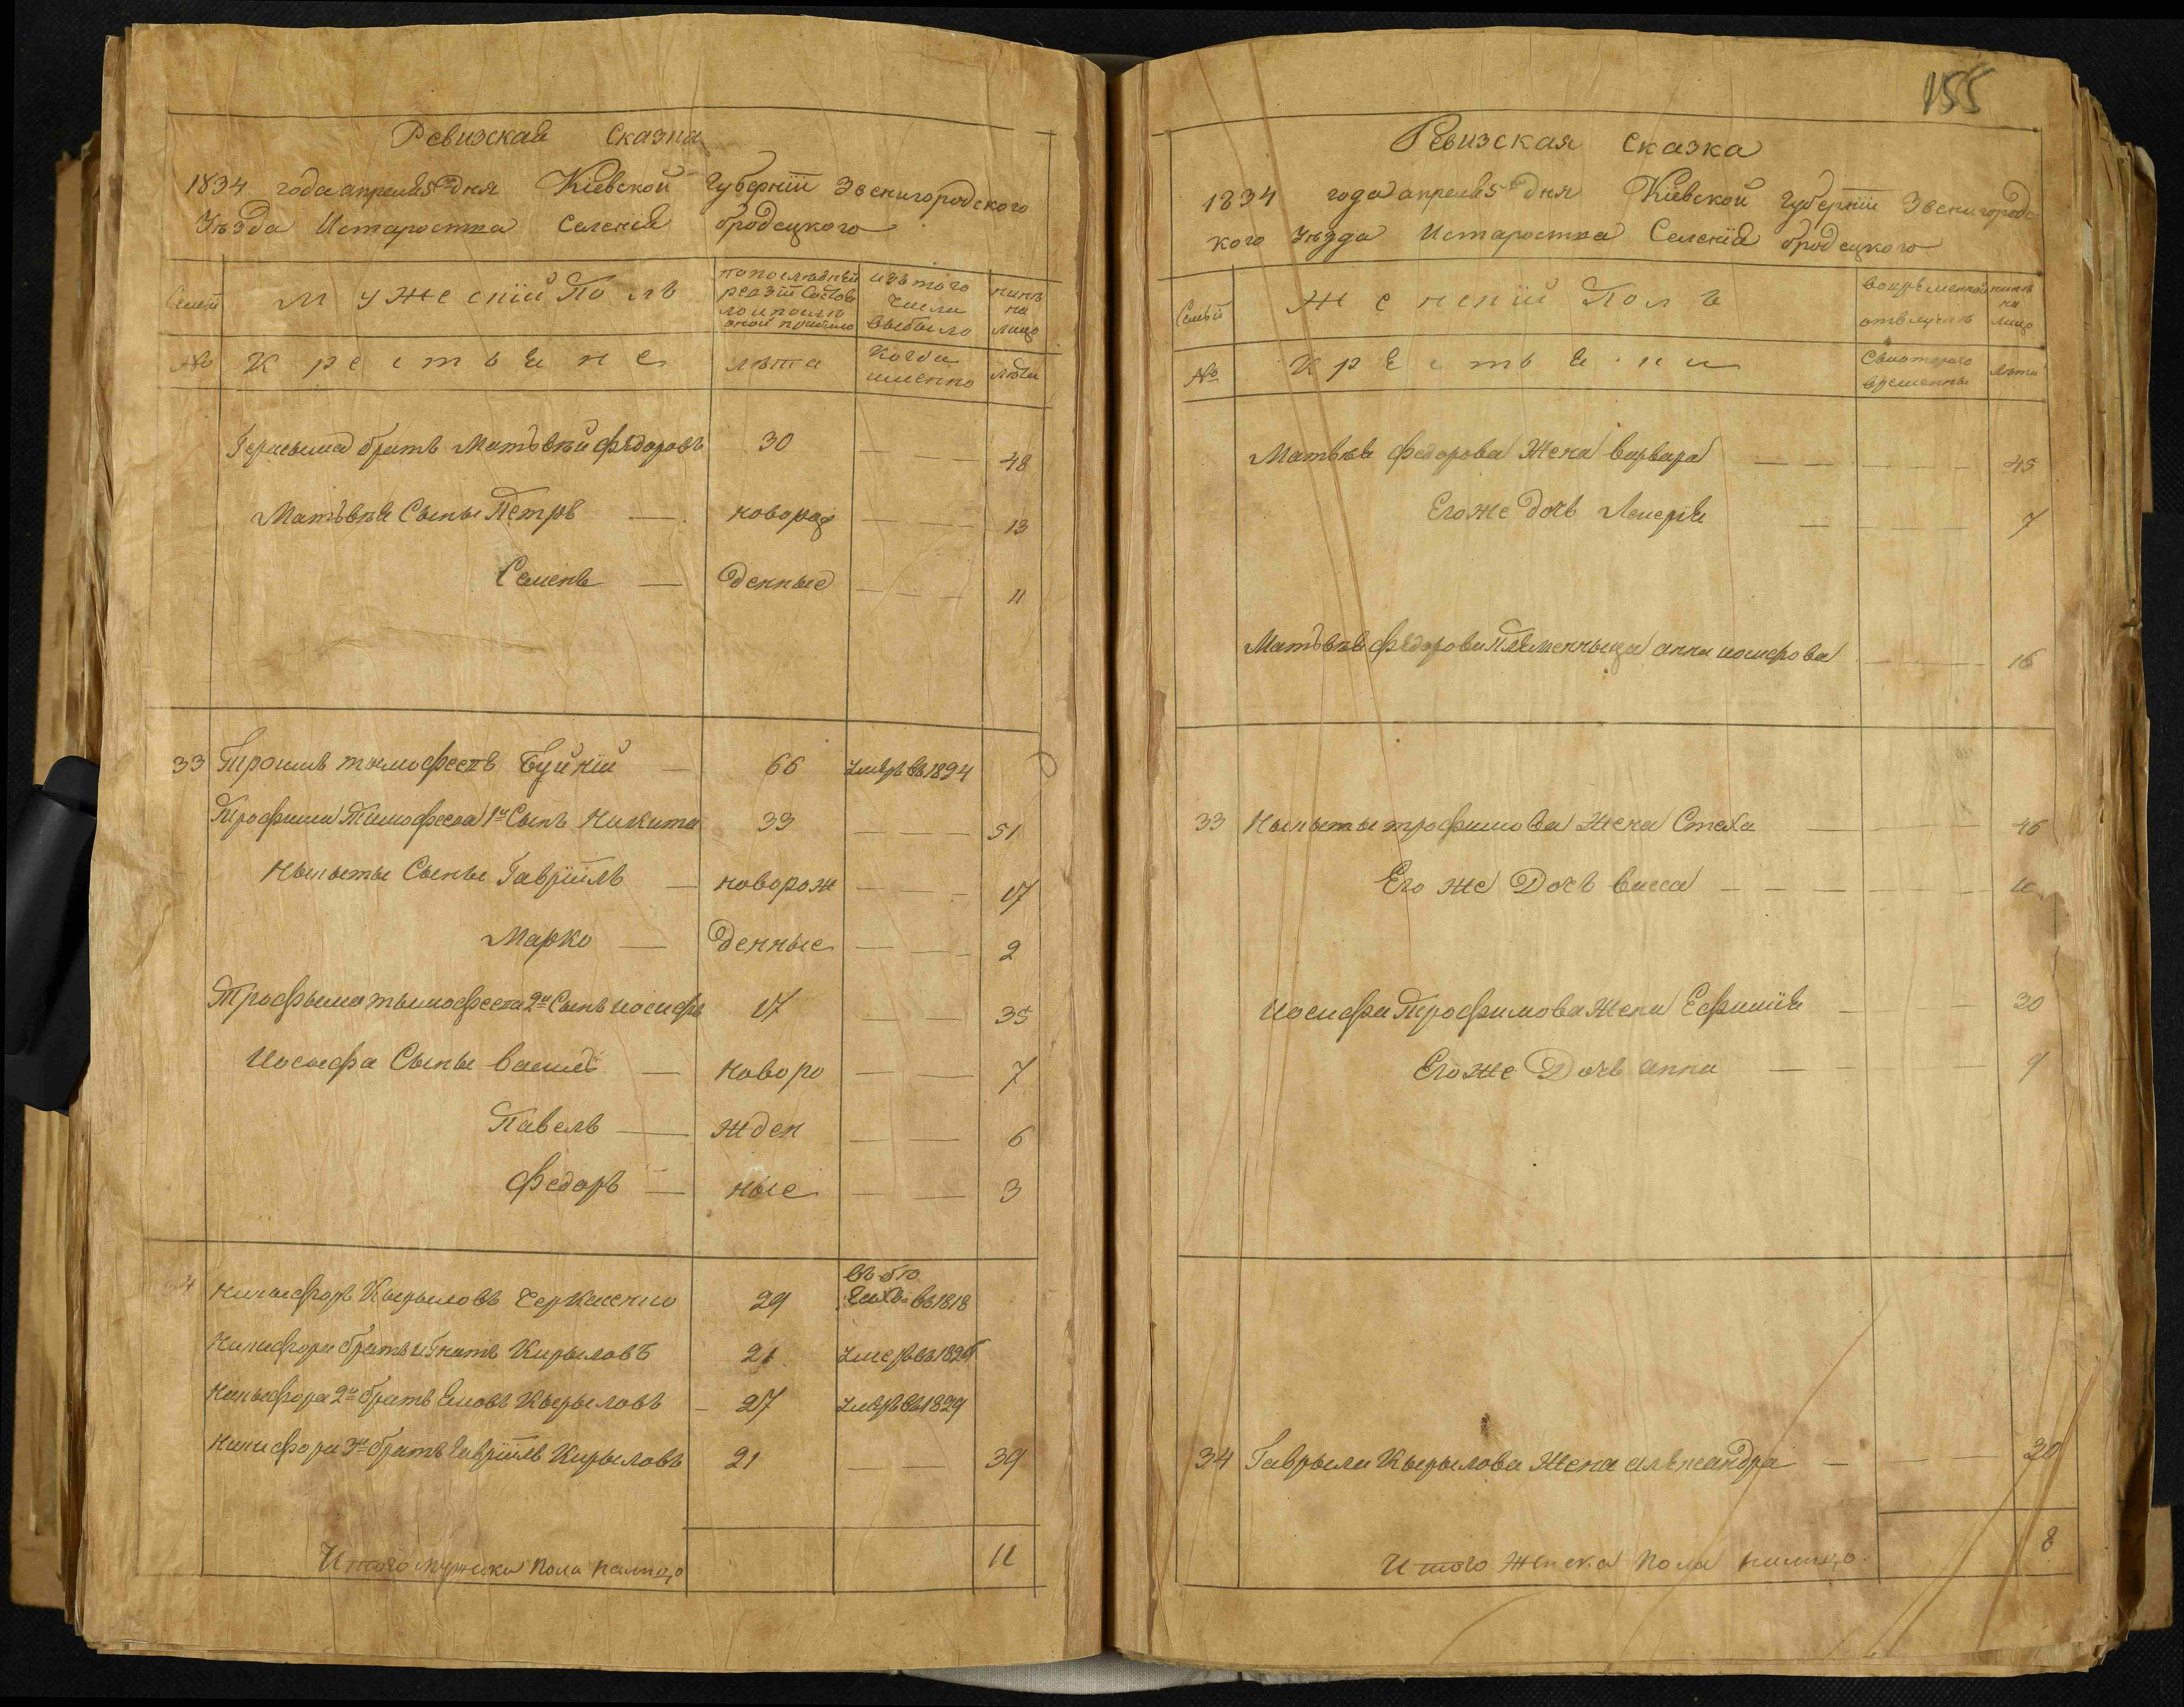 Ревизская Сказка
1834 года апреля 5 дня Кіевской Губерніи Звенигородского
Уѣзда Истаростка Селенія бродецкого
Семьи
Мужескій Полъ
попослѣдней ревзіи Состоя
ло ипослѣ оной прибыло
изъ того числа выбыло
нинѣ на лицо
№
Крестьяне
лѣта
Когда именно
лѣта
братъ Матъвѣй федоровъ 30 — — — 48
Матъвѣя Сыны Петръ — новорож — — — 13
Семенъ — денные — — — 11
33 тимофеевъ Буйкій — 66 Умеръ въ 1824
Трофима Тимофеева 1й Сынъ Никита 33 — — — 51
Ныкыты Сыны Гавріилъ — новорож — — — 17
Марко — денные — — — 2
Трофыма тымофеева 2й Сынъ иосифъ 17 — — 35
Иосыфа Сыны василь — новоро — — 7
Павелъ — жден — — 6
федоръ — ные — — 3
34 Никифоръ Кырыловъ 29 въ 1818
Никифора братъ игнатъ Кирыловъ 21 Умеръ въ
Никыфора 2й братъ Кырыловъ — 27 Умеръ въ 1829
Никифора 3й братъ Гавріилъ Кирыловъ 21 — — 39
Итого мужска пола налицо 11
155
Ревизская Сказка
1834 года апреля 5 дня Кіевской Губерніи Звенигородс
кого Уѣзда Истаростка Селенія бродецкого
Семьи
Женскій Полъ
вовременной отълучкѣ
нинѣ на лицо
№
Крестьянки
Скоторого времены
лѣта
Матвѣя федорова Жена варвара — — — — — 45
Егоже дочь — — — — 7
Матъвѣя федорова племенныца анна иосифова — — — 16
33 Ныкыты трофимова Жена Стеха — — — — 46
Его же Дочь васса — — — — — — 11
Иосифа Трофимова Жена Ефимія — — — 30
Егоже Дочь анна — — — 9
34 Гаврыла Кырылова Жена александра — — — 30
Итого женска пола налицо. 8